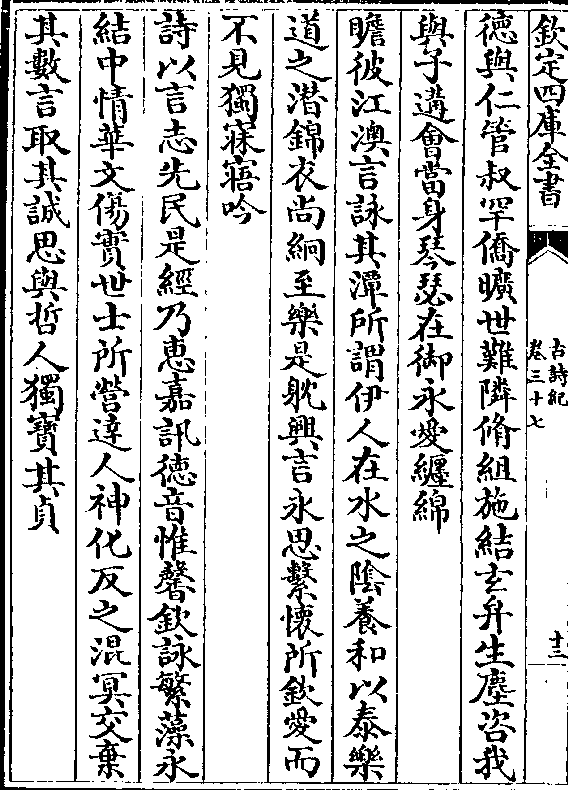 欽定四庫全書
古詩紀
卷三十七
十三
德與仁管叔罕僑曠世難隣脩組施結玄弁生塵咨我
與子遘會當身琴瑟在御永愛纏綿
瞻彼江澳言詠其潭所謂伊人在水之陰養和以泰樂
道之潛錦衣尚絅至樂是躭興言永思繫懷所欽愛而
不見獨寐寤吟
詩以言志先民是經乃惠嘉訊德音惟馨欽詠繁藻永
結中情華文傷實世士所營達人神化反之混冥交棄
其數言取其誠思與哲人獨寶其貞